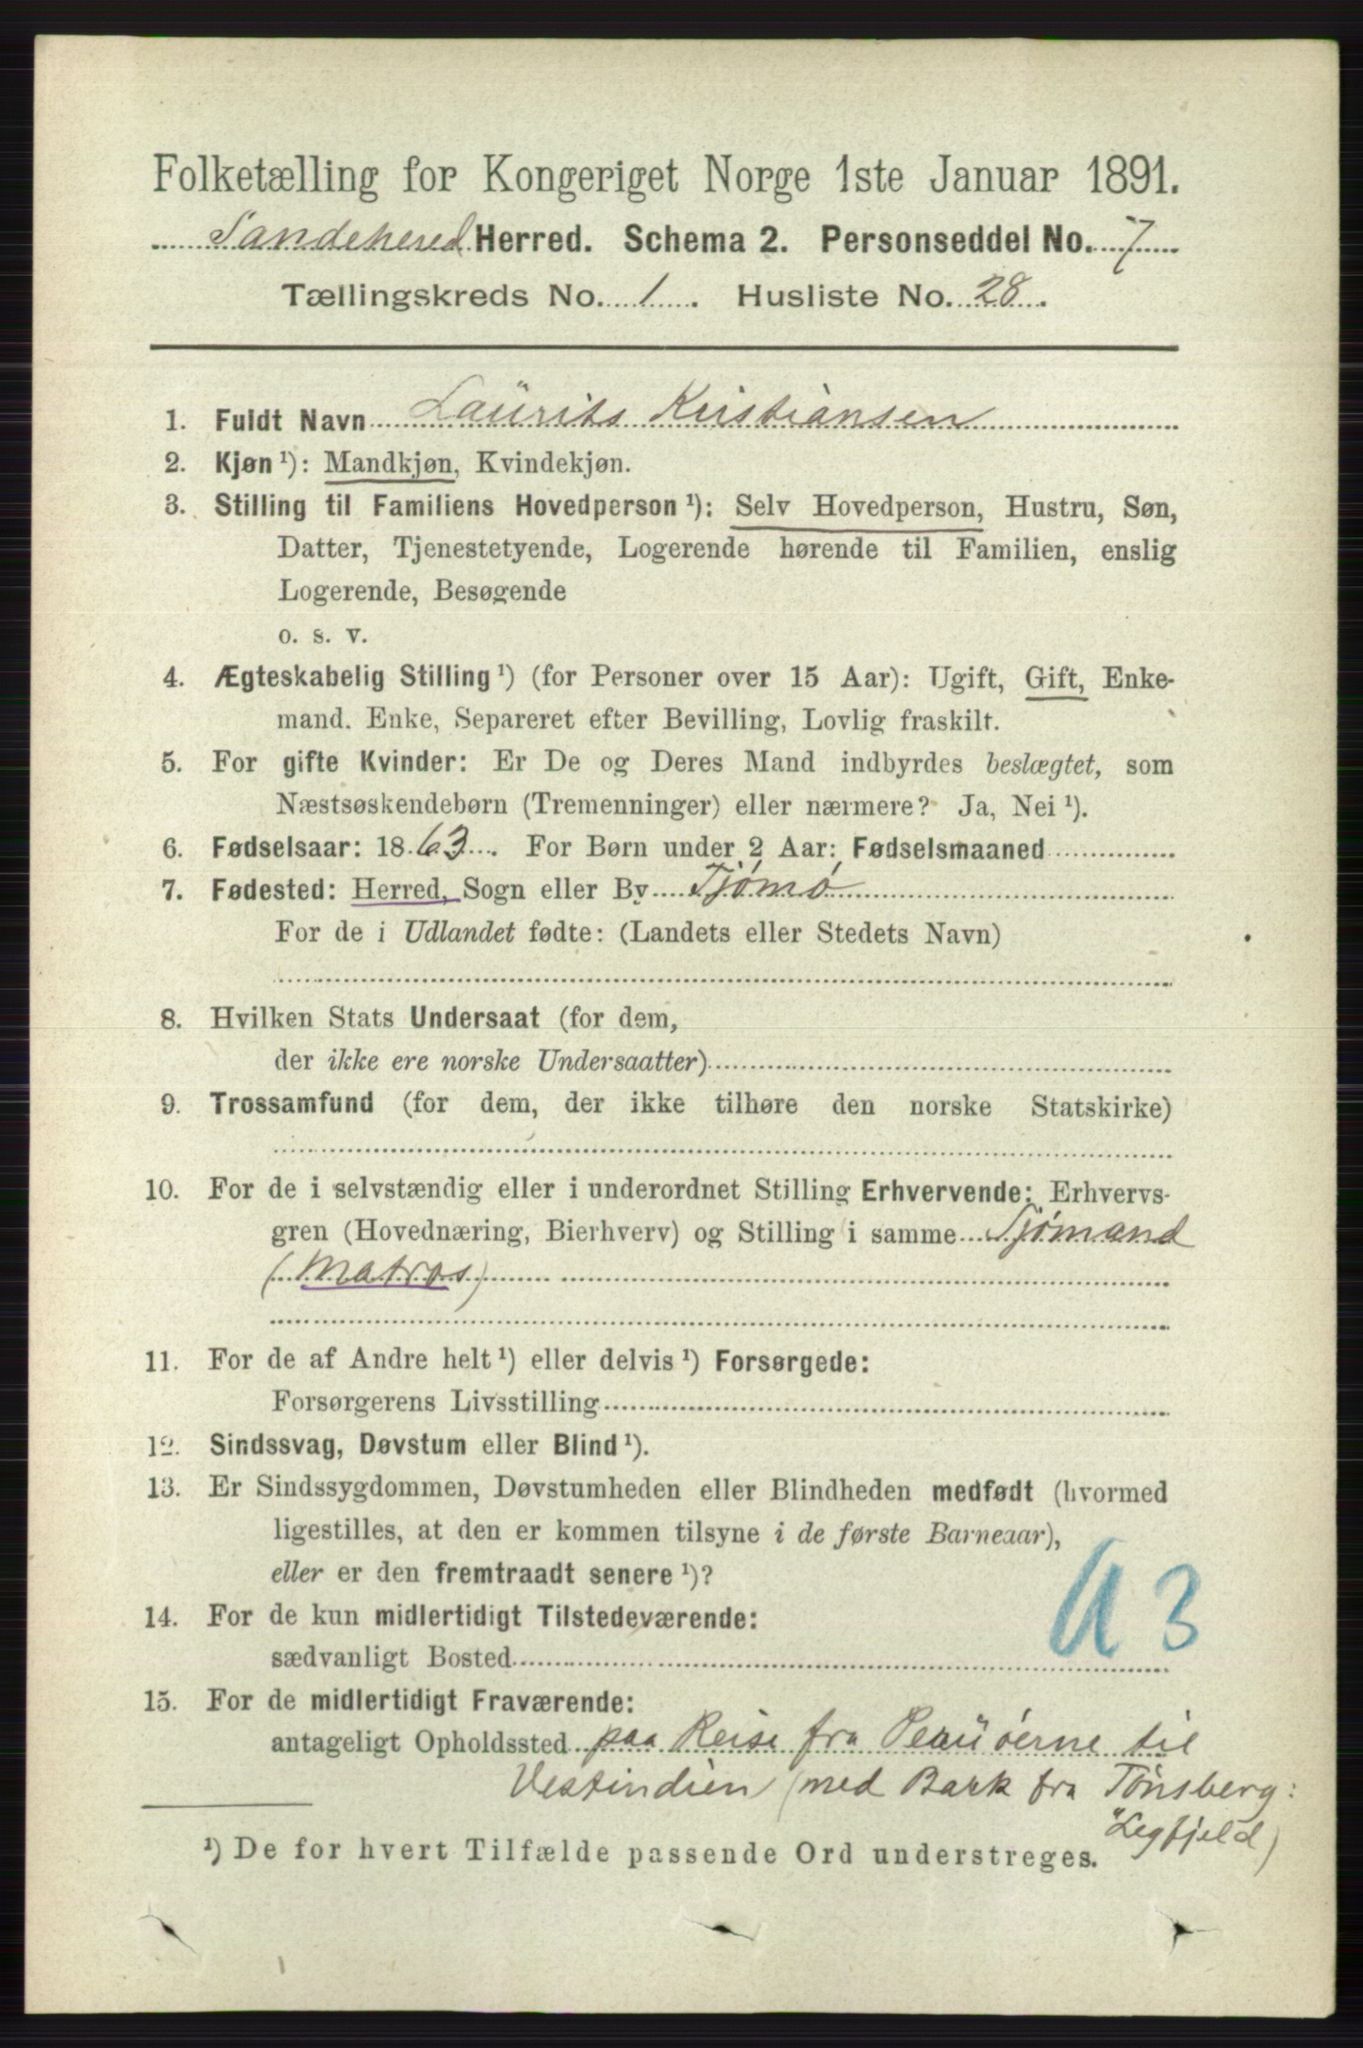 Folketælling for Kongeriget Norge 1ste Januar 1891.
Sandehered Herred. Schema 2. Personseddel No. 7
Tællingskreds No. 1. Husliste No. 28.
1. Fuldt Navn Laurits Kristiansen
2. Kjøn ¹): Mandkjøn, Kvindekjøn.
3. Stilling til Familiens Hovedperson ¹): Selv Hovedperson, Hustru, Søn,
Datter, Tjenestetyende, Logerende hørende til Familien, enslig
Logerende, Besøgende
o. s. v.
4. Ægteskabelig Stilling ¹) (for Personer over 15 Aar): Ugift, Gift, Enke-
mand. Enke, Separeret efter Bevilling, Lovlig fraskilt.
5. For gifte Kvinder: Er De og Deres Mand indbyrdes beslægtet, som
Næstsøskendebørn (Tremenninger) eller nærmere? Ja, Nei ¹).
6. Fødselsaar: 1863. For Børn under 2 Aar: Fødselsmaaned
7. Fødested: Herred, Sogn eller By Tjømø
For de i Udlandet fødte: (Landets eller Stedets Navn)
8. Hvilken Stats Undersaat (for dem,
der ikke ere norske Undersaatter)
9. Trossamfund (for dem, der ikke tilhøre den norske Statskirke)
10. For de i selvstændig eller i underordnet Stilling Erhvervende: Erhvervs-
gren (Hovednæring, Bierhverv) og Stilling i samme Sjømand
(Matros)
11. For de af Andre helt ¹) eller delvis ¹) Forsørgede:
Forsørgerens Livsstilling
12. Sindssvag, Døvstum eller Blind ¹).
13. Er Sindssygdommen, Døvstumheden eller Blindheden medfødt (hvormed
ligestilles, at den er kommen tilsyne i de første Barneaar),
eller er den fremtraadt senere ¹)?
14. For de kun midlertidigt Tilstedeværende:
sædvanligt Bosted
15. For de midlertidigt Fraværende:
antageligt Opholdssted paa Reise fra øerne til
Vestindien (med Bark fra Tønsberg:
¹) De for hvert Tilfælde passende Ord understreges.